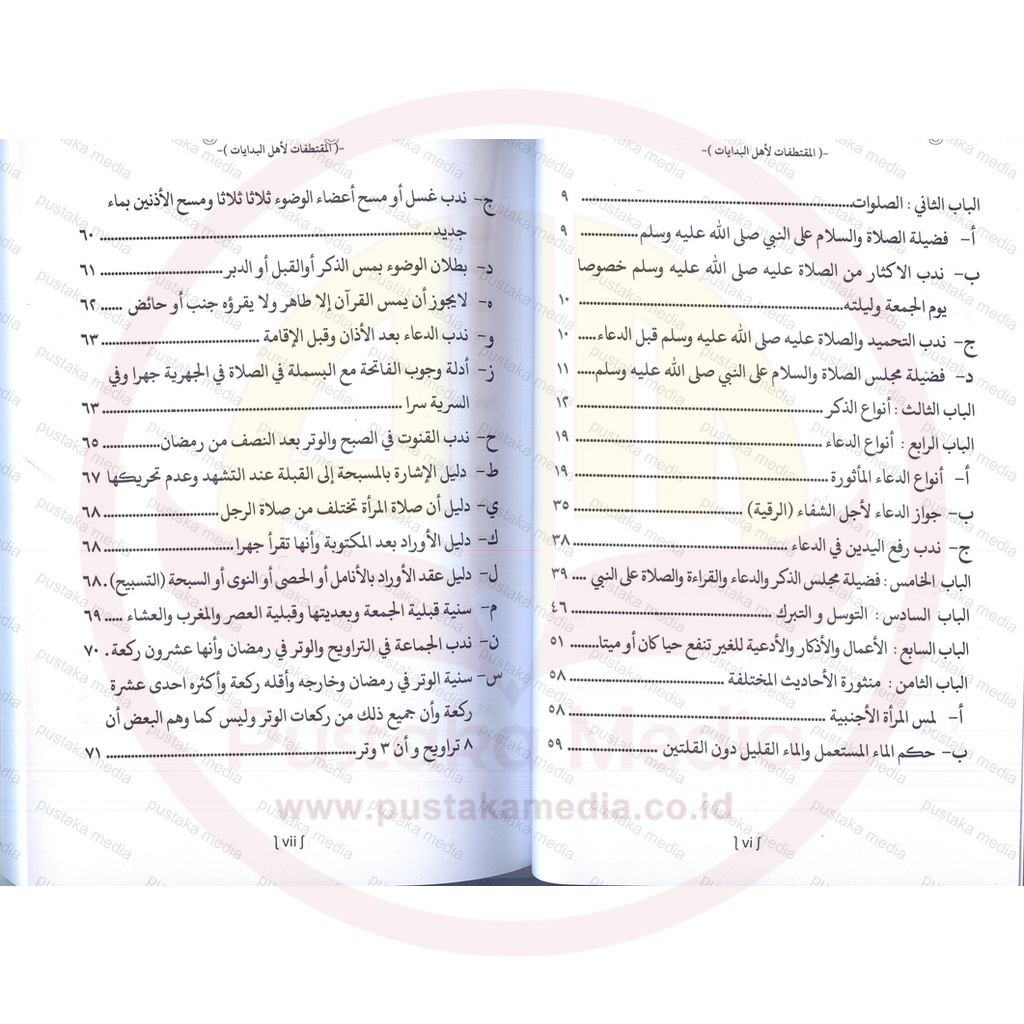 -( المقتطفات لأهل البدايات )-
الباب الثاني : الصلوات ........ ٩
أ- فضيلة الصلاة والسلام على النبي صلى الله عليه وسلم ........ ٩
ب- ندب الاكثار من الصلاة عليه صلى الله عليه وسلم خصوصا
يوم الجمعة وليلته ........ ١٠
ج- ندب التحميد والصلاة عليه صلى الله عليه وسلم قبل الدعاء ..... ١٠
د- فضيلة مجلس الصلاة والسلام على النبي صلى الله عليه وسلم ..... ١١
الباب الثالث : أنواع الذكر ........ ١٢
الباب الرابع : أنواع الدعاء ........ ١٩
أ- أنواع الدعاء المأثورة ........ ١٩
ب- جواز الدعاء لأجل الشفاء (الرقية) ........ ٣٥
ج- ندب رفع اليدين في الدعاء ........ ٣٨
الباب الخامس : فضيلة مجلس الذكر والدعاء والقراءة والصلاة على النبي .... ٣٩
الباب السادس : التوسل و التبرك ........ ٤٦
الباب السابع : الأعمال والأذكار والأدعية للغير تنفع حيا كان أو ميتا ........ ٥١
الباب الثامن : منثورة الأحاديث المختلفة ........ ٥٨
أ- لمس المرأة الأجنبية ........ ٥٨
ب- حكم الماء المستعمل والماء القليل دون القلتين ........ ٥٩
vi
-( المقتطفات لأهل البدايات )-
ج- ندب غسل أو مسح أعضاء الوضوء ثلاثا ثلاثا ومسح الأذنين بماء
جديد ........ ٦٠
د- بطلان الوضوء بمس الذكر أوالقبل أو الدبر ........ ٦١
ه- لايجوز أن يمس القرآن إلا طاهر ولا يقرؤه جنب أو حائض ..... ٦٢
و- ندب الدعاء بعد الأذان وقبل الإقامة ........ ٦٣
ز- أدلة وجوب الفاتحة مع البسملة في الصلاة في الجهرية جهرا وفي
السرية سرا ........ ٦٣
ح- ندب القنوت في الصبح والوتر بعد النصف من رمضان ........ ٦٥
ط- دليل الإشارة بالمسبحة إلى القبلة عند التشهد وعدم تحريكها ٦٧
ي- دليل أن صلاة المرأة تختلف من صلاة الرجل ........ ٦٨
ك- دليل الأوراد بعد المكتوبة وأنها تقرأ جهرا ........ ٦٨
ل- دليل عقد الأوراد بالأنامل أو الحصى أو النوى أو السبحة (التسبيح) . ٦٨
م- سنية قبلية الجمعة وبعديتها وقبلية العصر والمغرب والعشاء ..... ٦٩
ن- ندب الجماعة في التراويح والوتر في رمضان وأنها عشرون ركعة . ٧٠
س- سنية الوتر في رمضان وخارجه وأقله ركعة وأكثره احدى عشرة
ركعة وأن جميع ذلك من ركعات الوتر وليس كما وهم البعض أن
٨ تراويح و أن ٣ وتر ........ ٧١
vii
Pustaka Media
www.pustakamedia.co.id
pustaka media